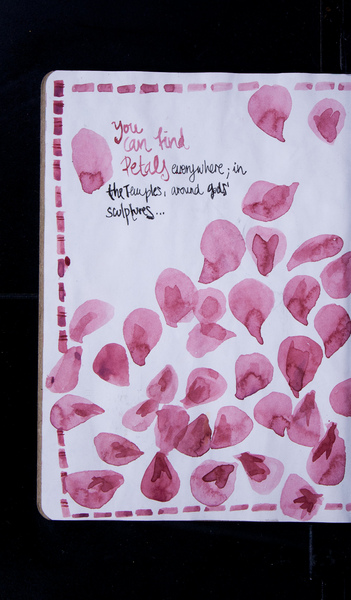 You
can find
Petals everywhere; in
the temples, around gods'
sculptures...